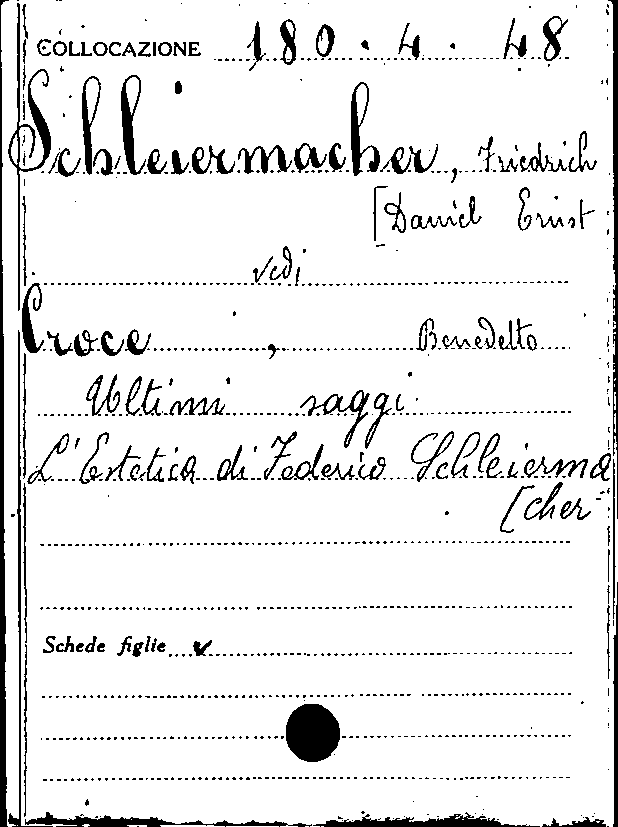 COLLOCAZIONE 180.4.48
Schleiermacher, Friedrich
[Daniel Ernst
vedi
Croce, Benedetto
Ultimi saggi.
L'Estetica di Federico Schleierma
[cher
Schede figlie ✓